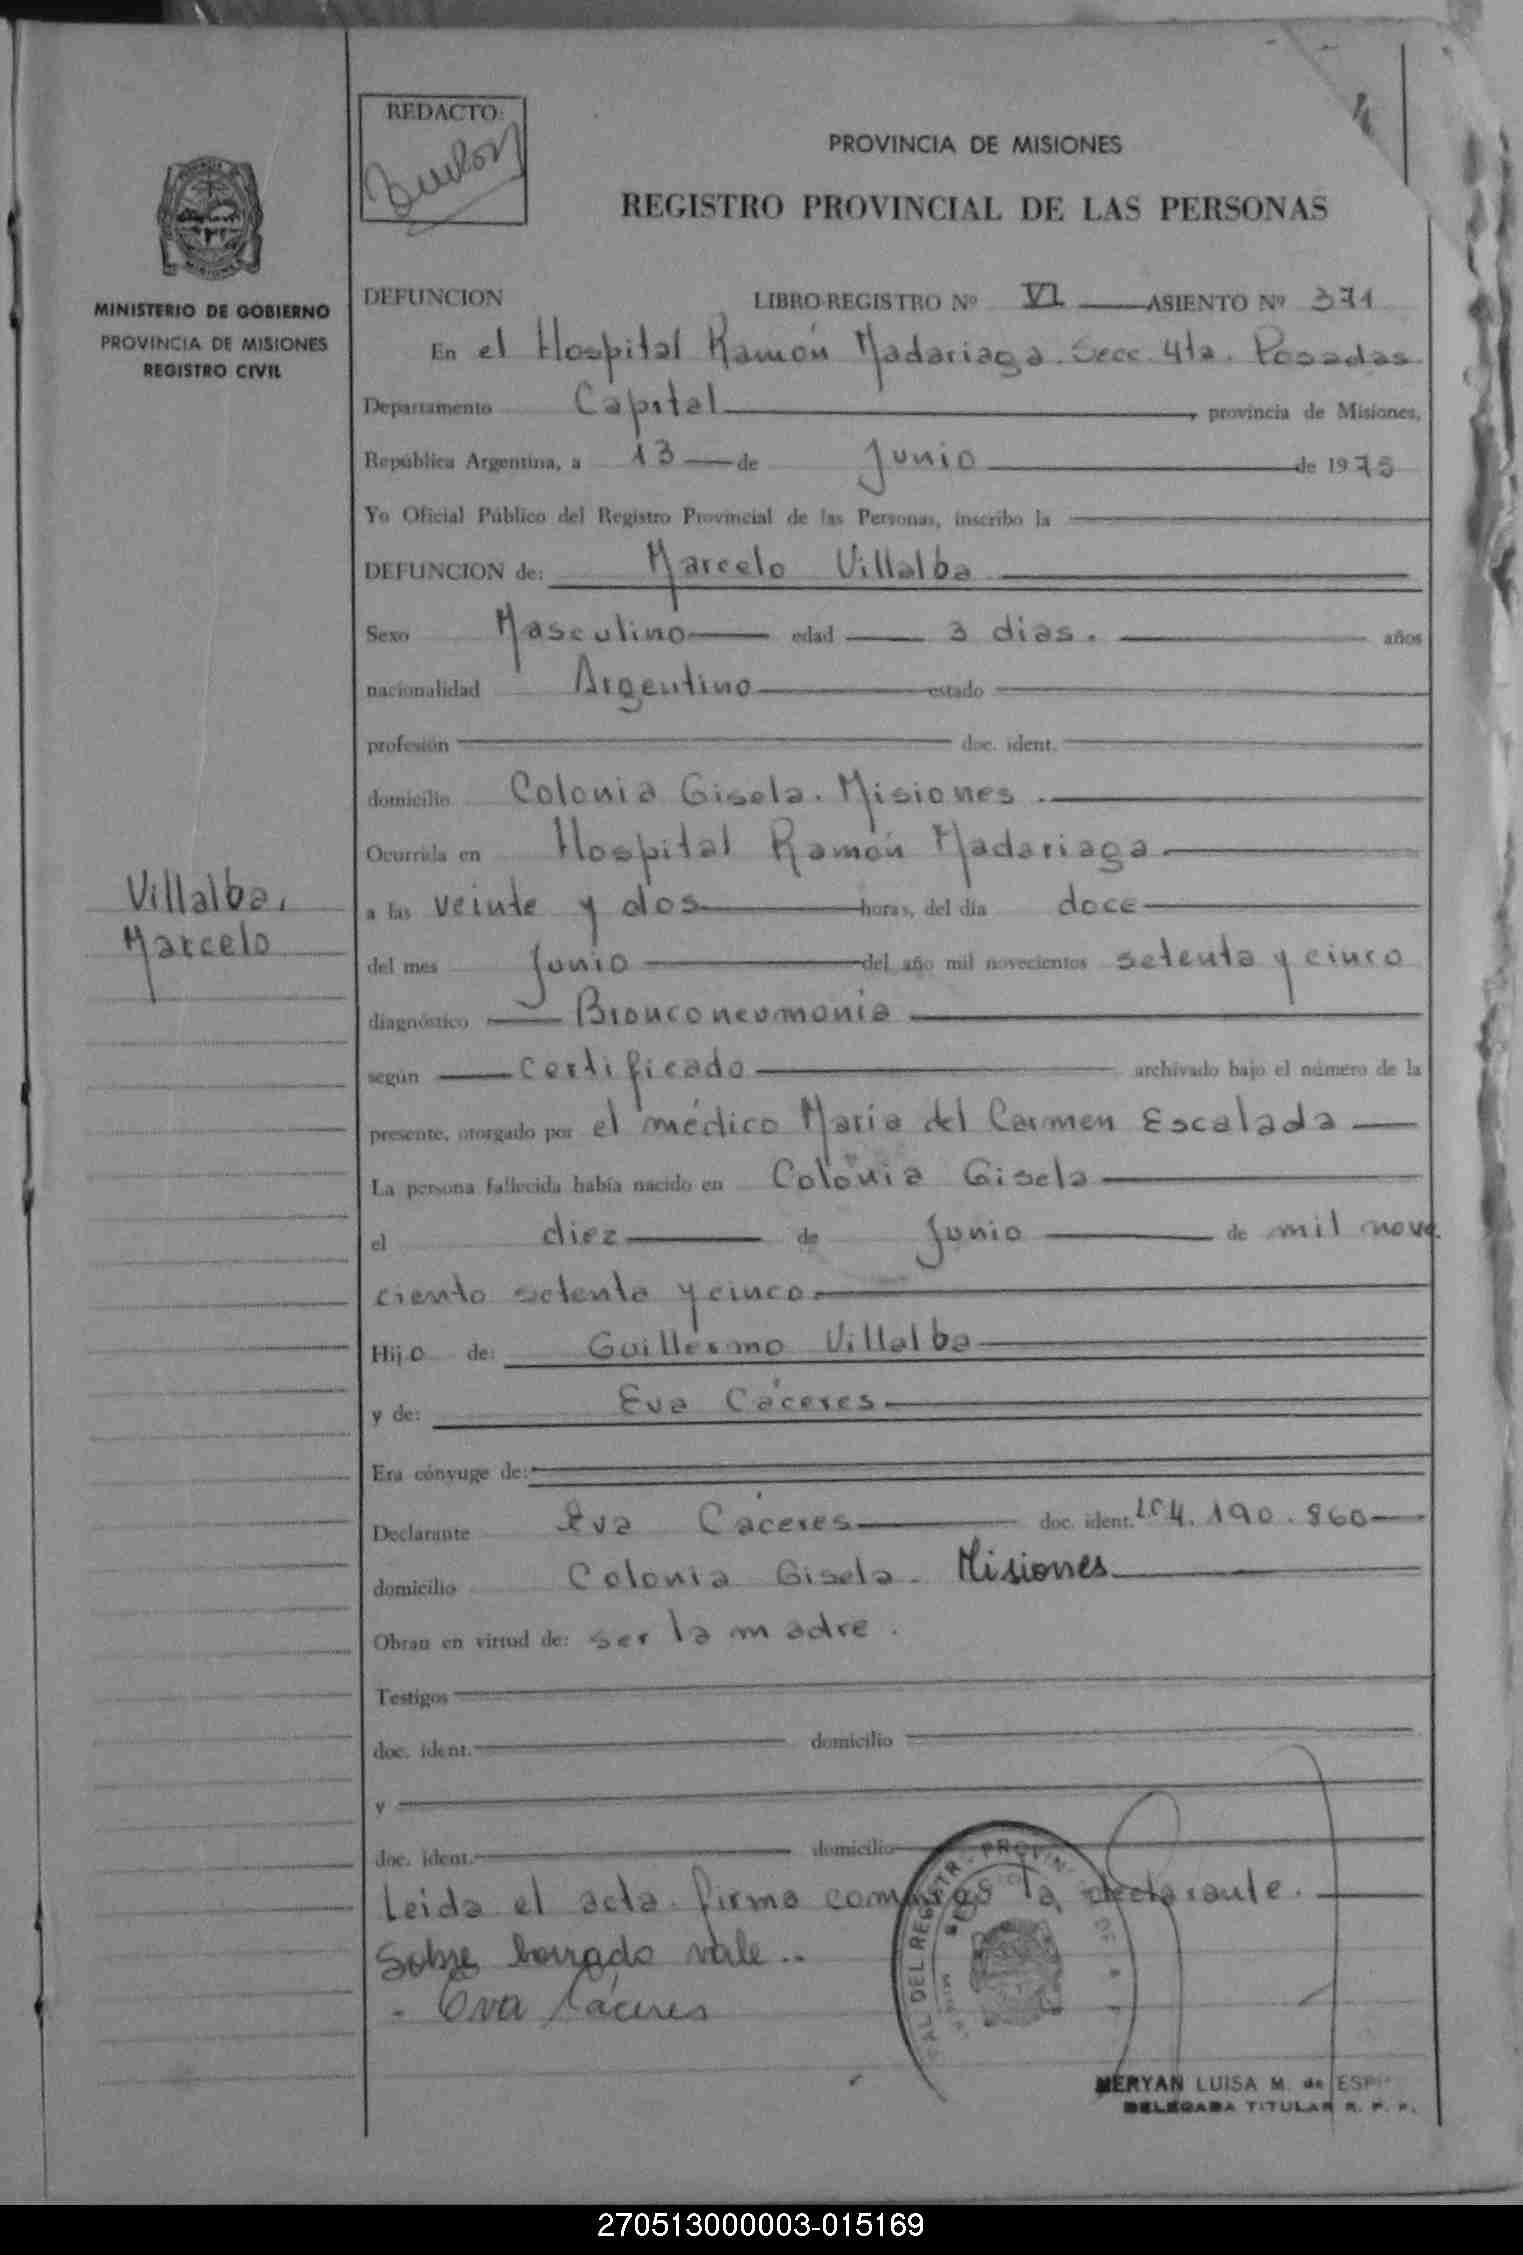 REDACTO:
4
PROVINCIA DE MISIONES
REGISTRO PROVINCIAL DE LAS PERSONAS
MINISTERIO DE GOBIERNO
PROVINCIA DE MISIONES
REGISTRO CIVIL
DEFUNCION LIBRO-REGISTRO Nº VI ASIENTO Nº 371
En el Hospital Ramón Madariaga. Secc. 4ta. Posadas
Departamento Capital, provincia de Misiones,
República Argentina, a 13 de Junio de 1975
Yo Oficial Público del Registro Provincial de las Personas, inscribo la
DEFUNCION de: Marcelo Villalba
Sexo Masculino edad 3 dias. años
nacionalidad Argentino estado
profesión doc. ident.
domicilio Colonia Gisela. Misiones.
Ocurrida en Hospital Ramón Madariaga
Villalba,
Marcelo
a las veinte y dos horas, del día doce
del mes Junio del año mil novecientos setenta y cinco
diagnóstico Bronconeumonia
según certificado archivado bajo el número de la
presente, otorgado por el médico Maria del Carmen Escalada
La persona fallecida había nacido en Colonia Gisela
el diez de Junio de mil nove
ciento setenta y cinco
Hijo de: Guillermo Villalba
y de: Eva Cáceres
Era cónyuge de:
Declarante Eva Cáceres doc. ident. LC 4.190.860
domicilio Colonia Gisela. Misiones
Obran en virtud de: ser la madre.
Testigos
doc. ident. domicilio
y
doc. ident. domicilio
Leida el acta. firma conmigo la declarante.
Sobre borrado vale..
Eva Cáceres
MERYAN LUISA M. de ESPI
DELEGADA TITULAR R. P. P.
270513000003-015169